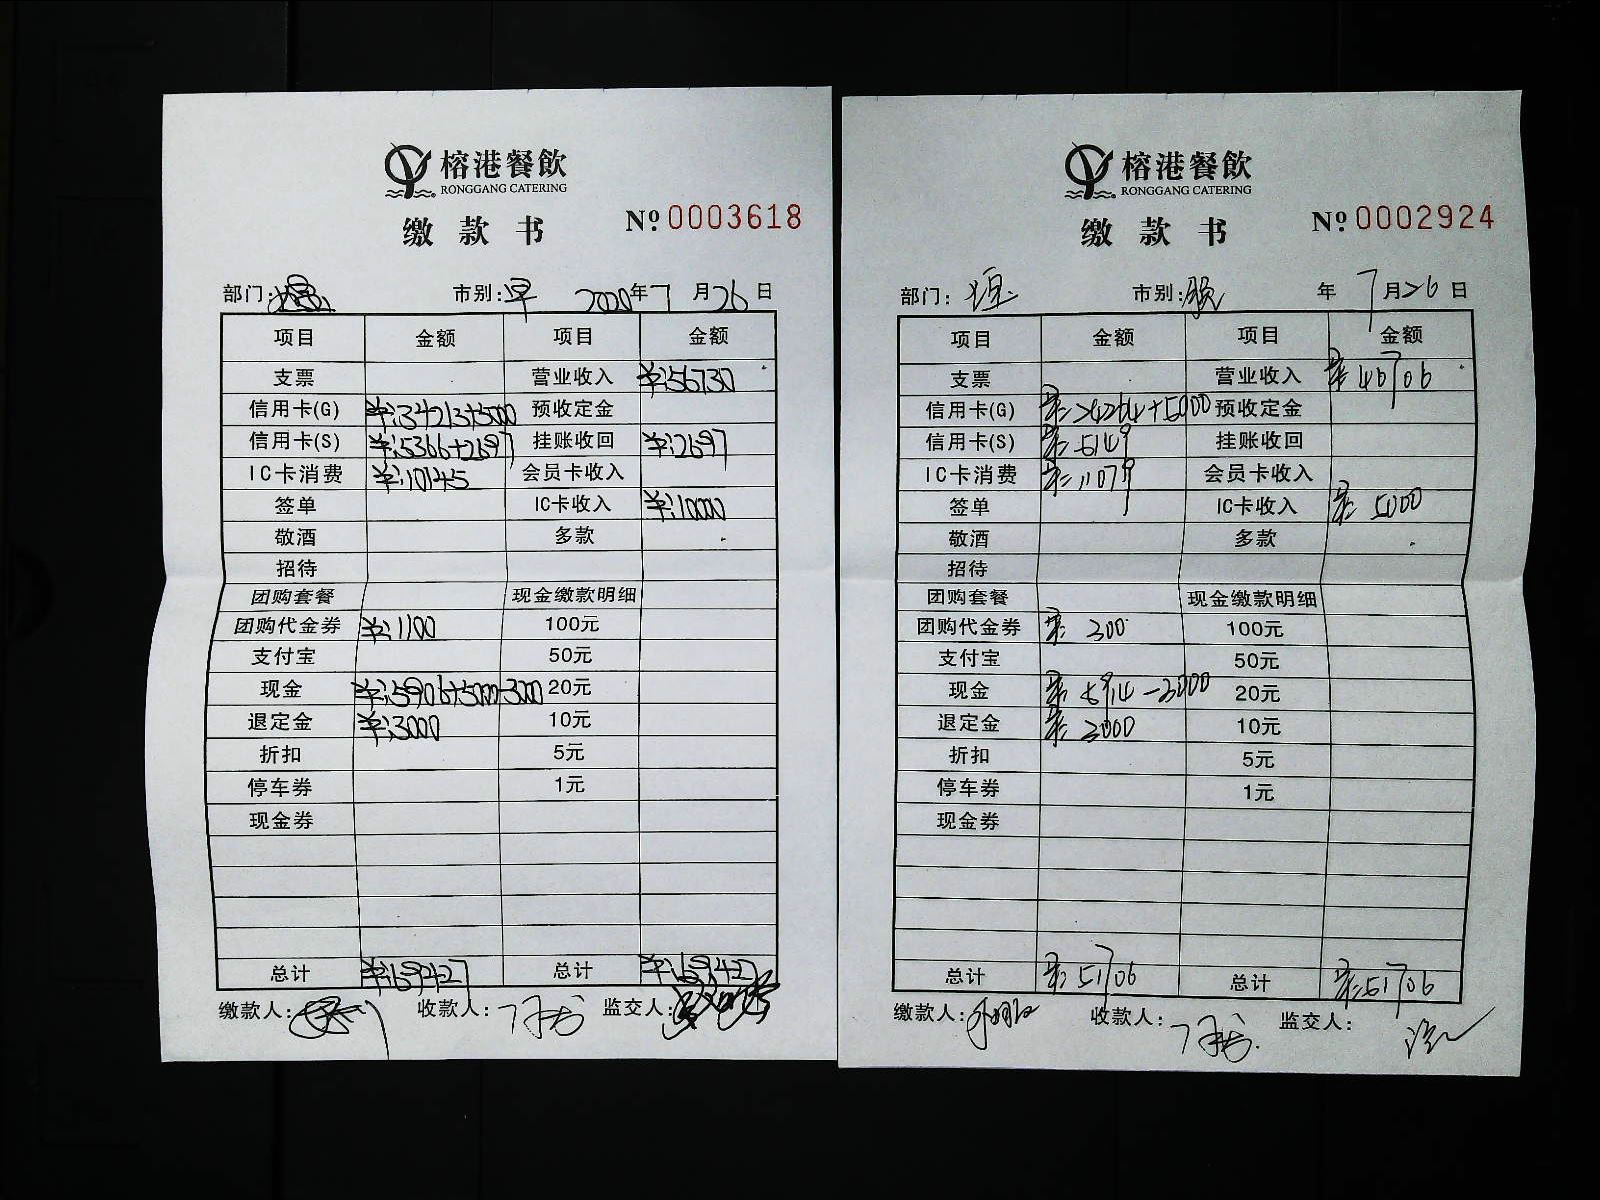 榕港餐飲
RONGGANG CATERING
缴款书 № 0003618
部门: 市别:早 2020年7月26日
项目 金额 项目 金额
支票 营业收入 ¥:56730
信用卡(G) ¥:34213+5000 预收定金
信用卡(S) ¥:5366+2697 挂账收回 ¥:2697
IC卡消费 ¥:10145 会员卡收入
签单 IC卡收入 ¥:10000
敬酒 多款
招待
团购套餐 现金缴款明细
团购代金券 ¥:1100 100元
支付宝 50元
现金 ¥:5906+5000-3000 20元
退定金 ¥:3000 10元
折扣 5元
停车券 1元
现金券
总计 ¥:69427 总计 ¥:69427
缴款人: 收款人: 监交人:
榕港餐飲
RONGGANG CATERING
缴款书 № 0002924
部门: 市别: 年7月26日
项目 金额 项目 金额
支票 营业收入 ¥:46706
信用卡(G) ¥:24264+5000 预收定金
信用卡(S) ¥:5149 挂账收回
IC卡消费 ¥:11079 会员卡收入
签单 IC卡收入 ¥:5000
敬酒 多款
招待
团购套餐 现金缴款明细
团购代金券 ¥:300 100元
支付宝 50元
现金 ¥:5914-2000 20元
退定金 ¥:2000 10元
折扣 5元
停车券 1元
现金券
总计 ¥:51706 总计 ¥:51706
缴款人: 收款人: 监交人: